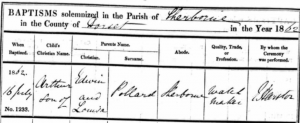 BAPTISMS solemnized in the Parish of Sherborne
in the County of Dorset in the Year 1862
When Baptized. Child's Christian Name. Parents Name. Abode. Quality, Trade, or Profession. By whom the Ceremony was performed.
Christian. Surname.
1862. Arthur Edwin Pollard Sherborne Watch
16 July Son of and Louisa maker
No. 1233.